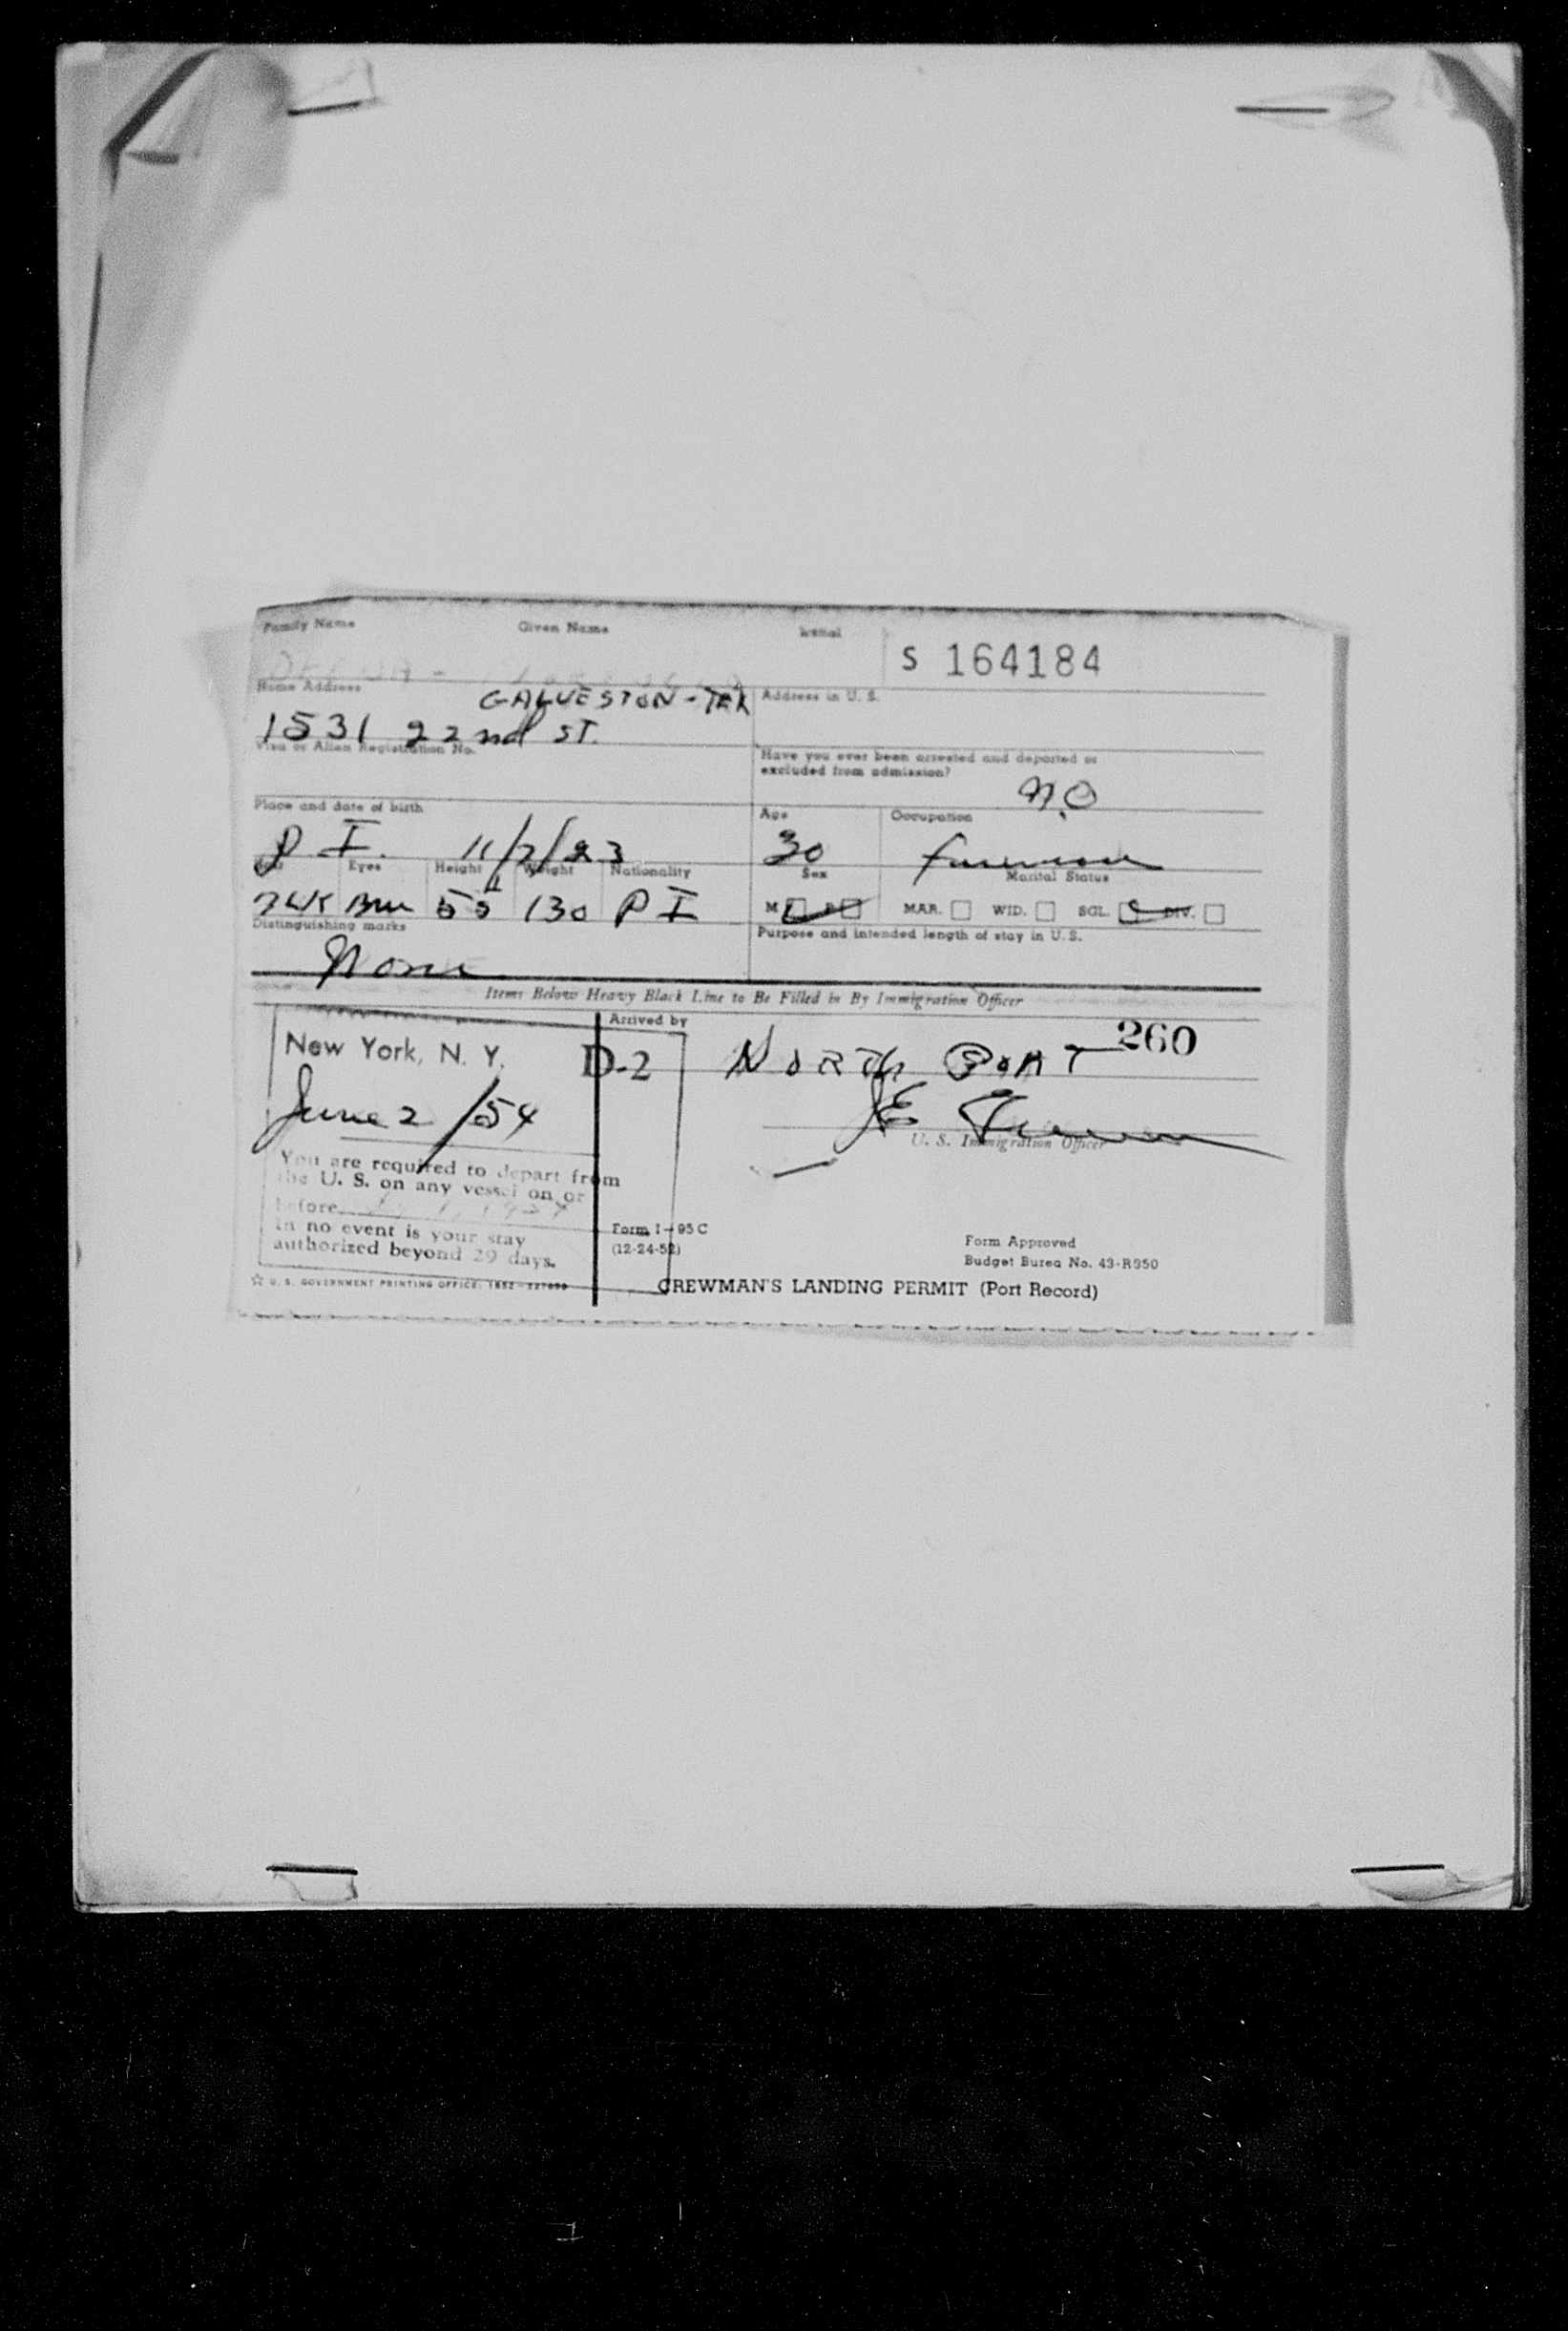 Family Name Given Name Initial
S 164184
Home Address GALVESTON-TEX Address in U. S.
1531 22nd ST.
Visa or Alien Registration No.
Have you ever been arrested and deported or
excluded from admission?
NO
Place and date of birth Age Occupation
P I. 11/2/23 30
Eyes Height Weight Nationality Sex Marital Status
130 P I M MAR. WID. SGL. DIV.
Distinguishing marks Purpose and intended length of stay in U.S.
None
Items Below Heavy Black Line to Be Filled in By Immigration Officer
Arrived by
New York, N. Y. D-2 NORTH PORT 260
June 2/54
U. S. Immigration Officer
You are required to depart from
the U. S. on any vessel on or
before
in no event is your stay
authorized beyond 29 days.
Form I-95C
(12-24-52)
Form Approved
Budget Bureau No. 43-R350
☆ U. S. GOVERNMENT PRINTING OFFICE: 1952
CREWMAN'S LANDING PERMIT (Port Record)